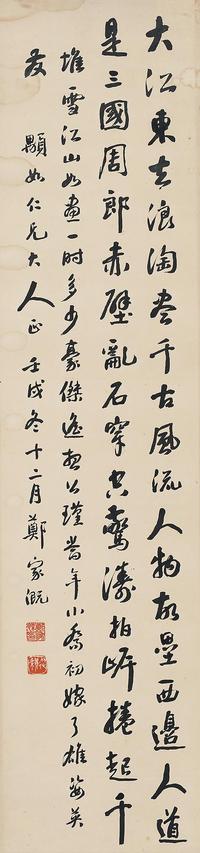 大江東去浪淘盡千古風流人物故壘西邊人道
是三國周郎赤壁亂石穿空驚濤拍岸捲起千
堆雪江山如畫一時多少豪傑遙想公瑾當年小喬初嫁了雄姿英
發 顯如仁兄大人正 壬戌冬十二月鄭家溉